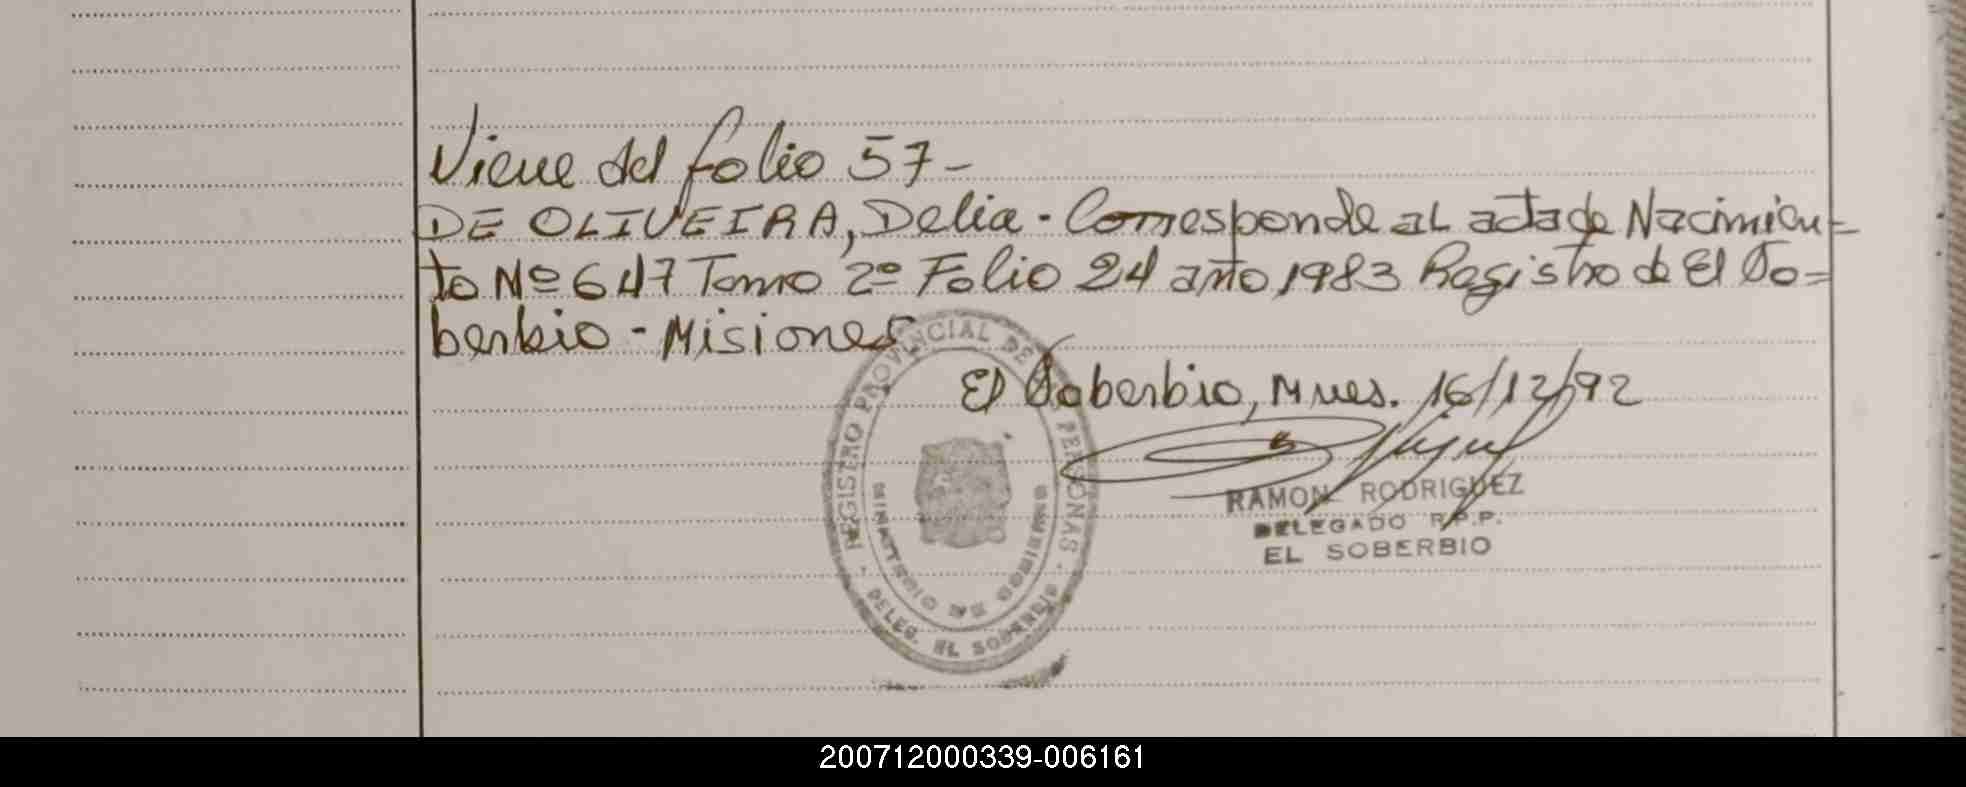 Viene del folio 57-
DE OLIVEIRA, Delia. Corresponde al acta de Nacimien=
to Nº 647 Tomo 2º Folio 24 año 1983 Registro de El So=
berbio - Misiones
El Soberbio, Mnes. 16/12/92
RAMON RODRIGUEZ
DELEGADO R.P.P.
EL SOBERBIO
REGISTRO PROVINCIAL DE PERSONAS
MINISTERIO DE GOBIERNO
DELEG. EL SOBERBIO
200712000339-006161